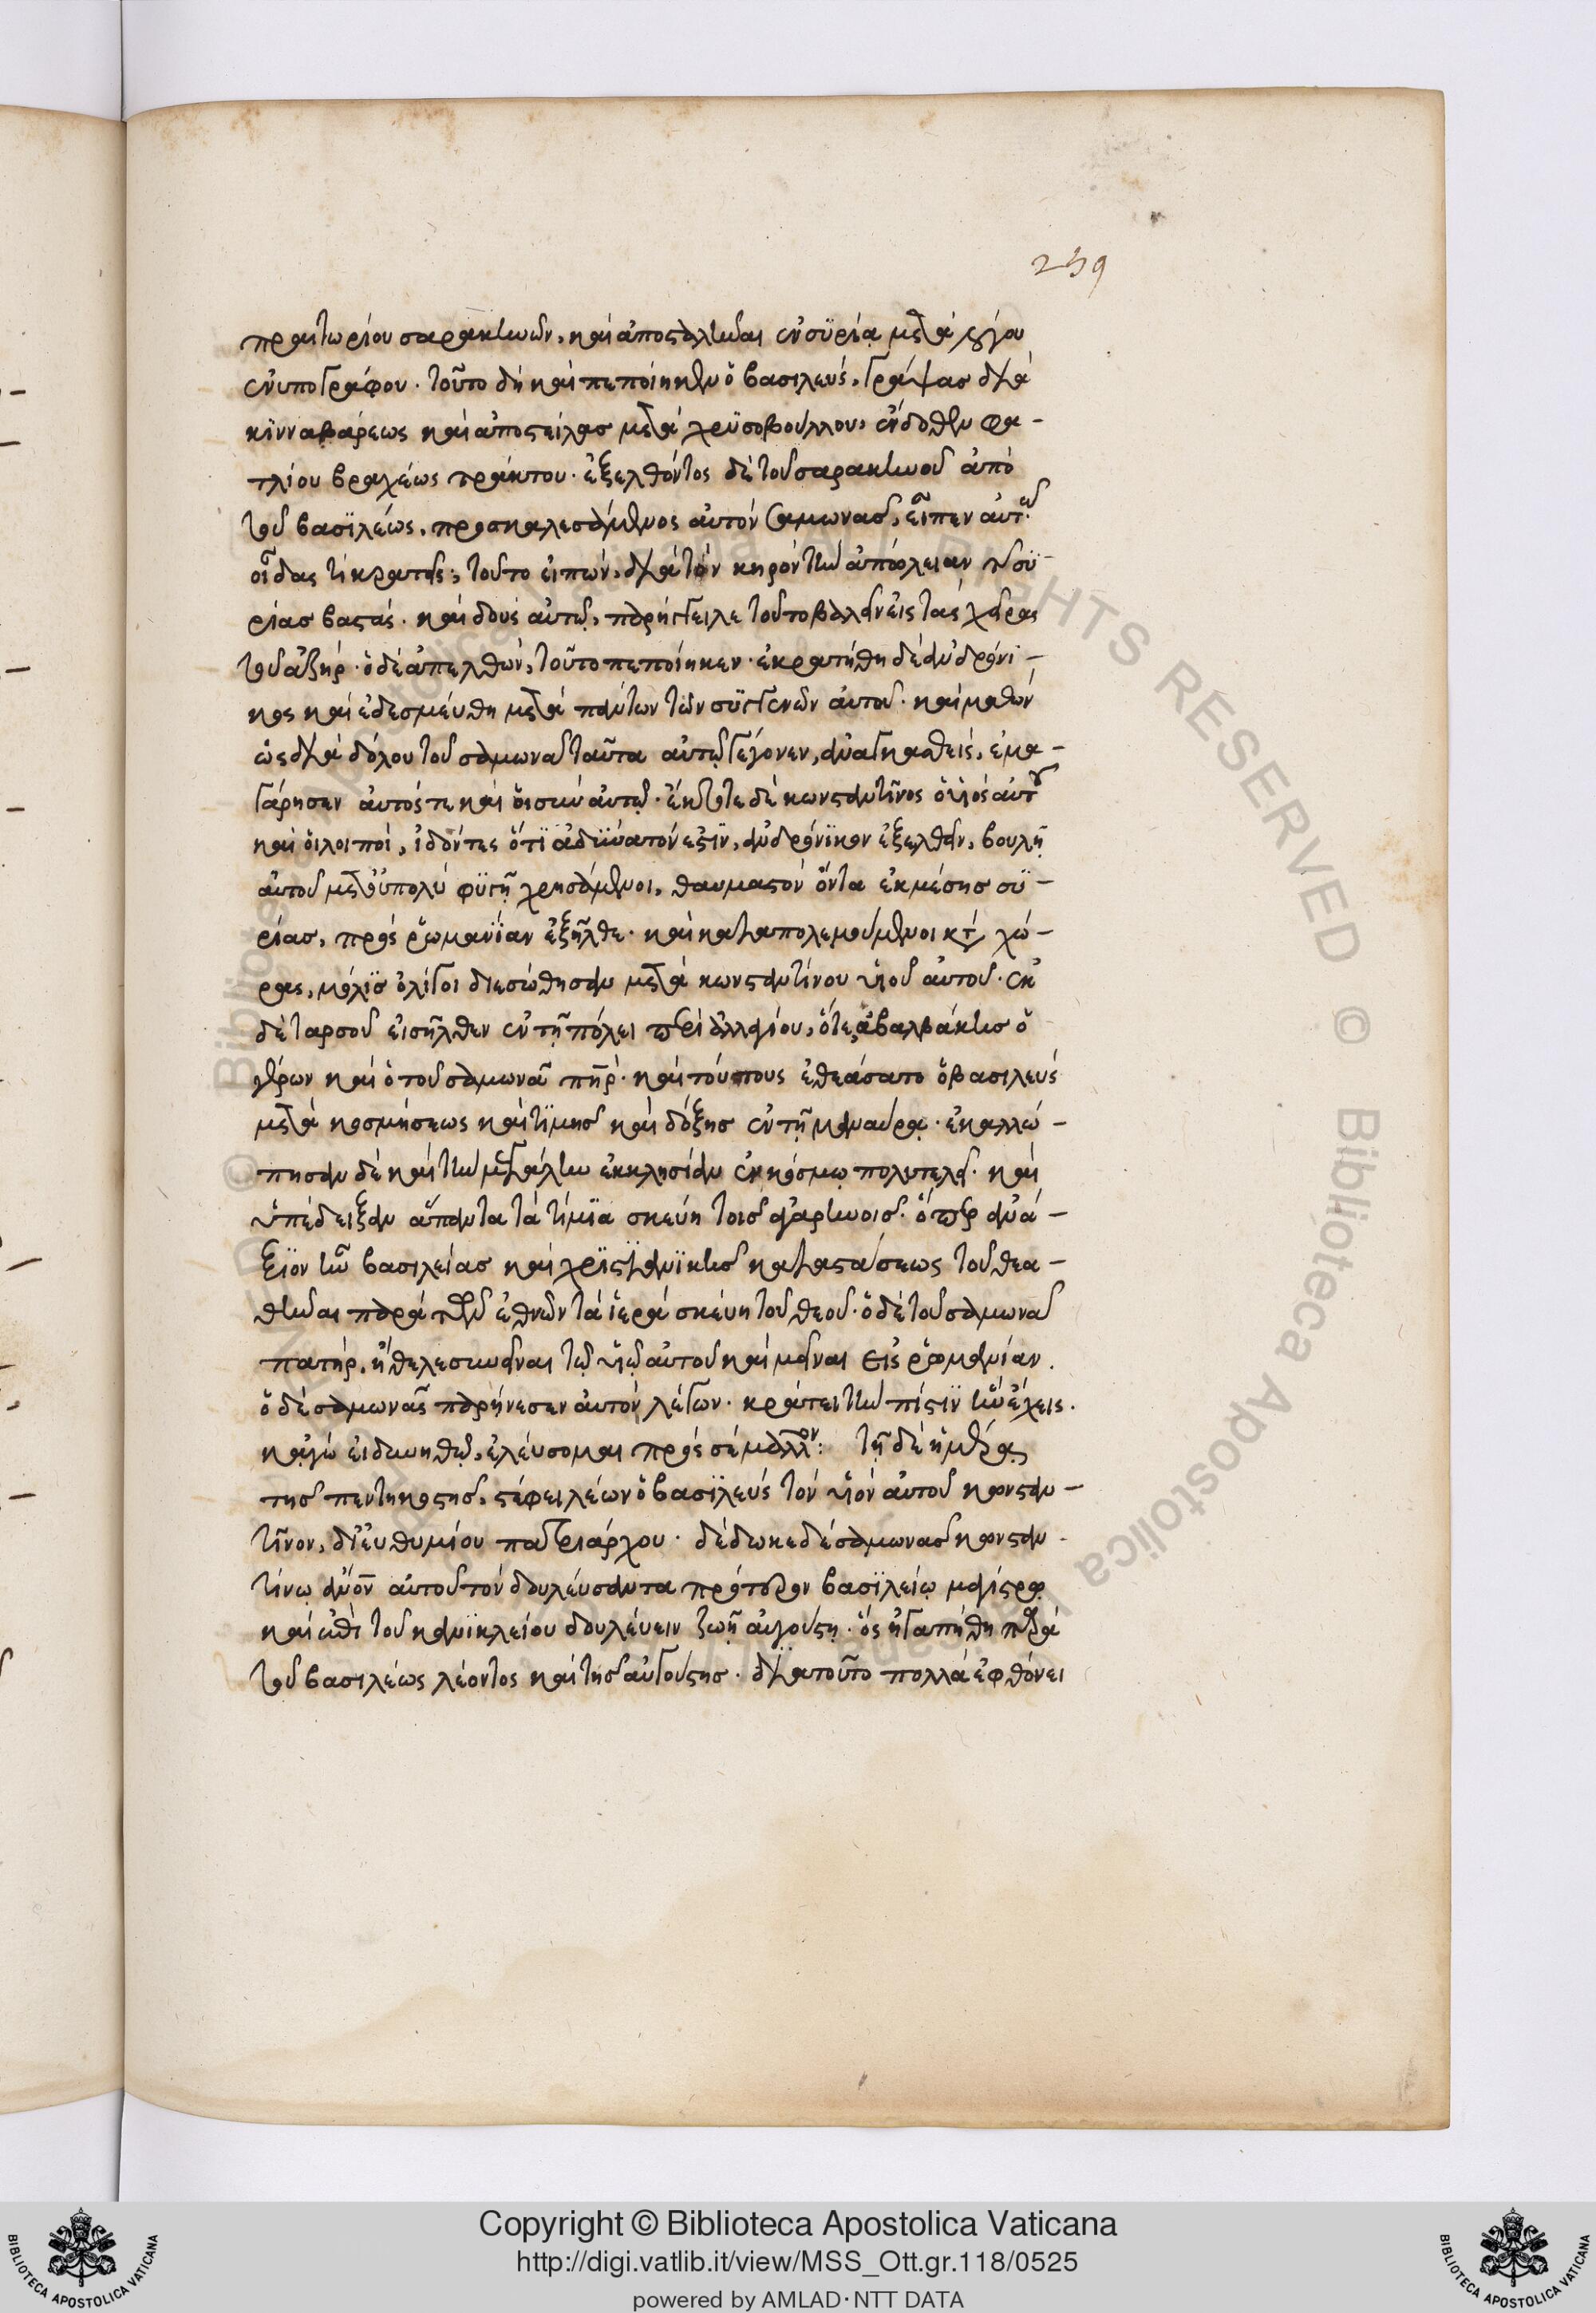 259
πραιτωρίου σαρακηνῶν, καὶ ἀποσταλῆναι ἐν συρία μετὰ
ἐνυπογράφου. τοῦτο δὴ καὶ πεποίηκεν ὁ βασιλεύς, γράψας διὰ
κινναβάρεως καὶ ἀποστείλας μετὰ χρυσοβούλλου, ἔνδοθεν φα-
τλίου βραχέως πράκτου. ἐξελθόντος δὲ τοῦ σαρακηνοῦ ἀπὸ
τοῦ βασιλέως, προσκαλεσάμενος αὐτὸν σαμωνᾶς, εἶπεν αὐτῶ
οἶδας τί κρατεῖς; τοῦτο εἰπὼν, διὰ τὸν κηρὸν τὴν ἀπώλειαν τῆς συ-
ρίας βαστᾶς. καὶ δοὺς αὐτῶ, παρήγγειλε τοῦτο βαλεῖν εἰς τὰς χεῖρας
τοῦ ἀβζήρ. ὁ δὲ ἀπελθὼν, τοῦτο πεποίηκεν. ἐκρατήθη δὲ ἀνδρόνι-
κος καὶ ἐδεσμεύθη μετὰ πάντων τῶν συγγενῶν αὐτοῦ. καὶ μαθὼν
ὡς διὰ δόλου τοῦ σαμωνᾶ ταῦτα αὐτῶ γέγονεν, ἀναγκασθεὶς, ἐμα-
γάρησεν αὐτός τε καὶ οἱ σὺν αὐτῶ. ἔκτοτε δὲ κωνσταντῖνος ὁ υἱὸς αὐτοῦ
καὶ οἱ λοιποὶ, ἰδόντες ὅτι ἀδύνατόν ἐστιν, ἀνδρόνικον ἐξελθεῖν, βουλῆ
αὐτοῦ μετ' οὐ πολὺ φυγῆ χρησάμενοι, θαυμαστὸν ὄντα ἐκ μέσης συ-
ρίας, πρὸς ῥωμανίαν ἐξῆλθε. καὶ καταπολεμούμενοι κτ χώ-
ρας, μόλις ὀλίγοι διεσώθησαν μετὰ κωνσταντίνου υἱοῦ αὐτοῦ. ἐκ
δὲ ταρσοῦ εἰσῆλθεν ἐν τῆ πόλει περὶ ἀλλαγίου, ὅτε ἀβαλβάκης ὁ
γέρων καὶ ὁ τοῦ σαμωνᾶ πηρ. καὶ τούτους ἐθεάσατο ὁ βασιλεὺς
μετὰ κοσμήσεως καὶ τιμῆς καὶ δόξης ἐν τῆ μαναύρα. ἐκαλλώ-
πησαν δὲ καὶ τὴν μεγάλην ἐκκλησίαν ἐν κόσμω πολυτελεῖ. καὶ
ὑπέδειξαν ἅπαντα τὰ τίμια σκεύη τοῖς ἀγαρηνοῖς. ὅπερ ἀνά-
ξιον ἦν βασιλείας καὶ χριστιανικῆς καταστάσεως τοῦ θεα-
θῆναι παρὰ τῶν ἐθνῶν τὰ ἱερὰ σκεύη τοῦ θεοῦ. ὁ δὲ τοῦ σαμωνᾶ
πατὴρ, ἤθελε συνεῖναι τῶ υἱῶ αὐτοῦ καὶ μεῖναι εἰς ῥωμανίαν.
ὁ δὲ σαμωνᾶς παρήνεσεν αὐτὸν λέγων. κράτει τὴν πίστιν ἣν ἔχεις.
καγὼ εἰ δυνηθῶ, ἐλεύσομαι πρὸς σὲ μᾶλλον: τῆ δὲ ἡμέρα
τῆς πεντηκοστῆς, στέφει λέων ὁ βασιλεὺς τὸν υἱὸν αὐτοῦ κωνσταν-
τῖνον, δι' εὐθυμίου πατριάρχου. δέδωκε δὲ σαμωνᾶς κωνσταν-
τίνω ἀνὸν αὐτοῦ τὸν δουλεύσαντα πρώτοις βασιλείω μαγίστρω
καὶ ἐπὶ τοῦ κανικλείου δουλεύειν ζωῆ αὐγούστη. ὃς ἠγαπήθη παρὰ
τοῦ βασιλέως λέοντος καὶ τῆς αὐγούστης. διὰ τοῦτο πολλὰ ἐφθόνει
Copyright © Biblioteca Apostolica Vaticana
http://digi.vatlib.it/view/MSS_Ott.gr.118/0525
powered by AMLAD·NTT DATA